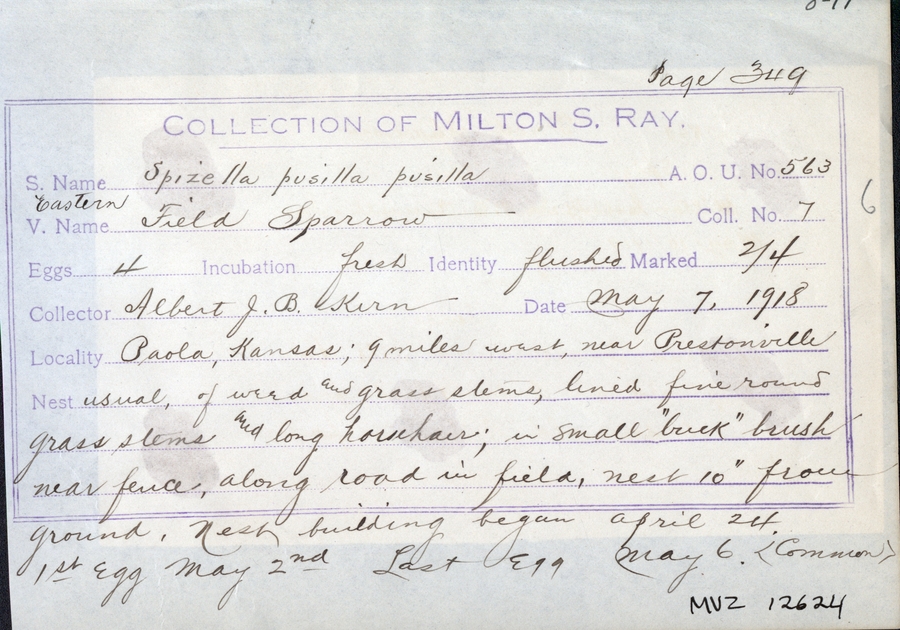 Page 349
COLLECTION OF MILTON S. RAY.
S. Name Spizella pusilla pusilla A. O. U. No 563
Eastern
V. Name Field Sparrow Coll. No. 7
6
Eggs 4 Incubation fresh Identity flushed Marked 2/4
Collector Albert J. B. Kirn Date May 7, 1918
Locality Paola, Kansas; 9 miles west, near Prestonville
Nest usual, of weed and grass stems, lined fine round
grass stems and long horsehair; in small "buck" brush
near fence, along road in field, nest 10" from
ground. Nest building began april 24
1st Egg May 2nd Last Egg May 6. (Common)
MVZ 12624